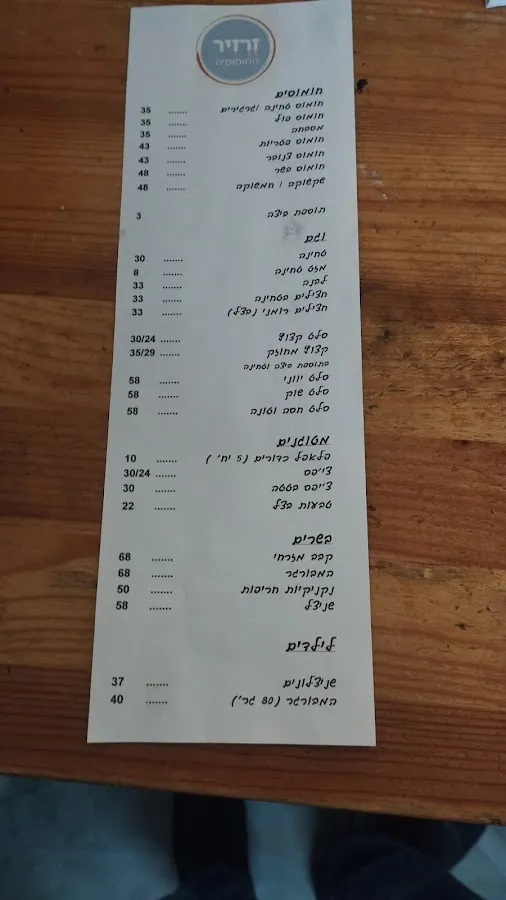 זרזיר
החומוסיה
חומוסים
חומוס טחינה וגרגירים ....... 35
חומוס פול ....... 35
מסבחה ....... 35
חומוס פטריות ....... 43
חומוס צנובר ....... 43
חומוס בשר ....... 48
שקשוקה / חמשוקה ....... 48
תוספת ביצה 3
וגם
טחינה ....... 30
מזט טחינה ....... 8
לבנה ....... 33
חצילים בטחינה ....... 33
חצילים רומני (בצל) ....... 33
סלט קצוץ ....... 30/24
קצוץ מחוזק ....... 35/29
בתוספת ביצה וטחינה
סלט יווני ....... 58
סלט שוק ....... 58
סלט חסה וטונה ....... 58
מטוגנים
פלאפל כדורים (5 יח' ) ....... 10
צ'יפס ....... 30/24
צ'יפס בטטה ....... 30
טבעות בצל ....... 22
בשרים
קבב מזרחי ....... 68
המבורגר ....... 68
נקניקיות חריפות ....... 50
שניצל ....... 58
לילדים
שניצלונים ....... 37
המבורגר (80 גר') ....... 40